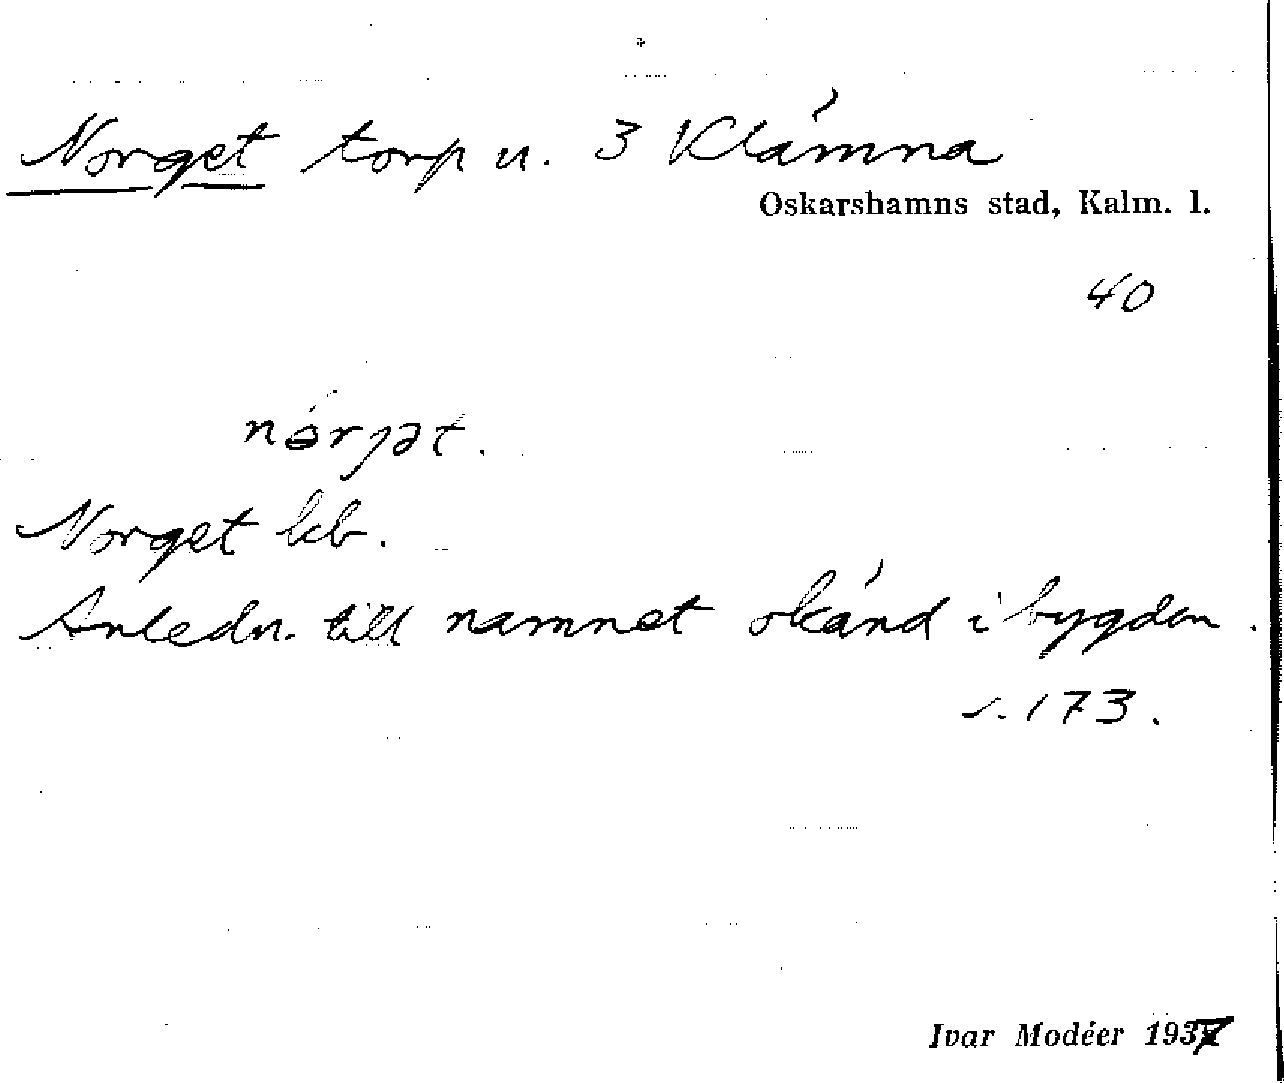 Norget torp u. 3 Klämna
Oskarshamns stad, Kalm. l.
40
nórjət.
Norget kb.
Anledn. till namnet okänd i bygden.
s. 173.
Ivar Modéer 1937